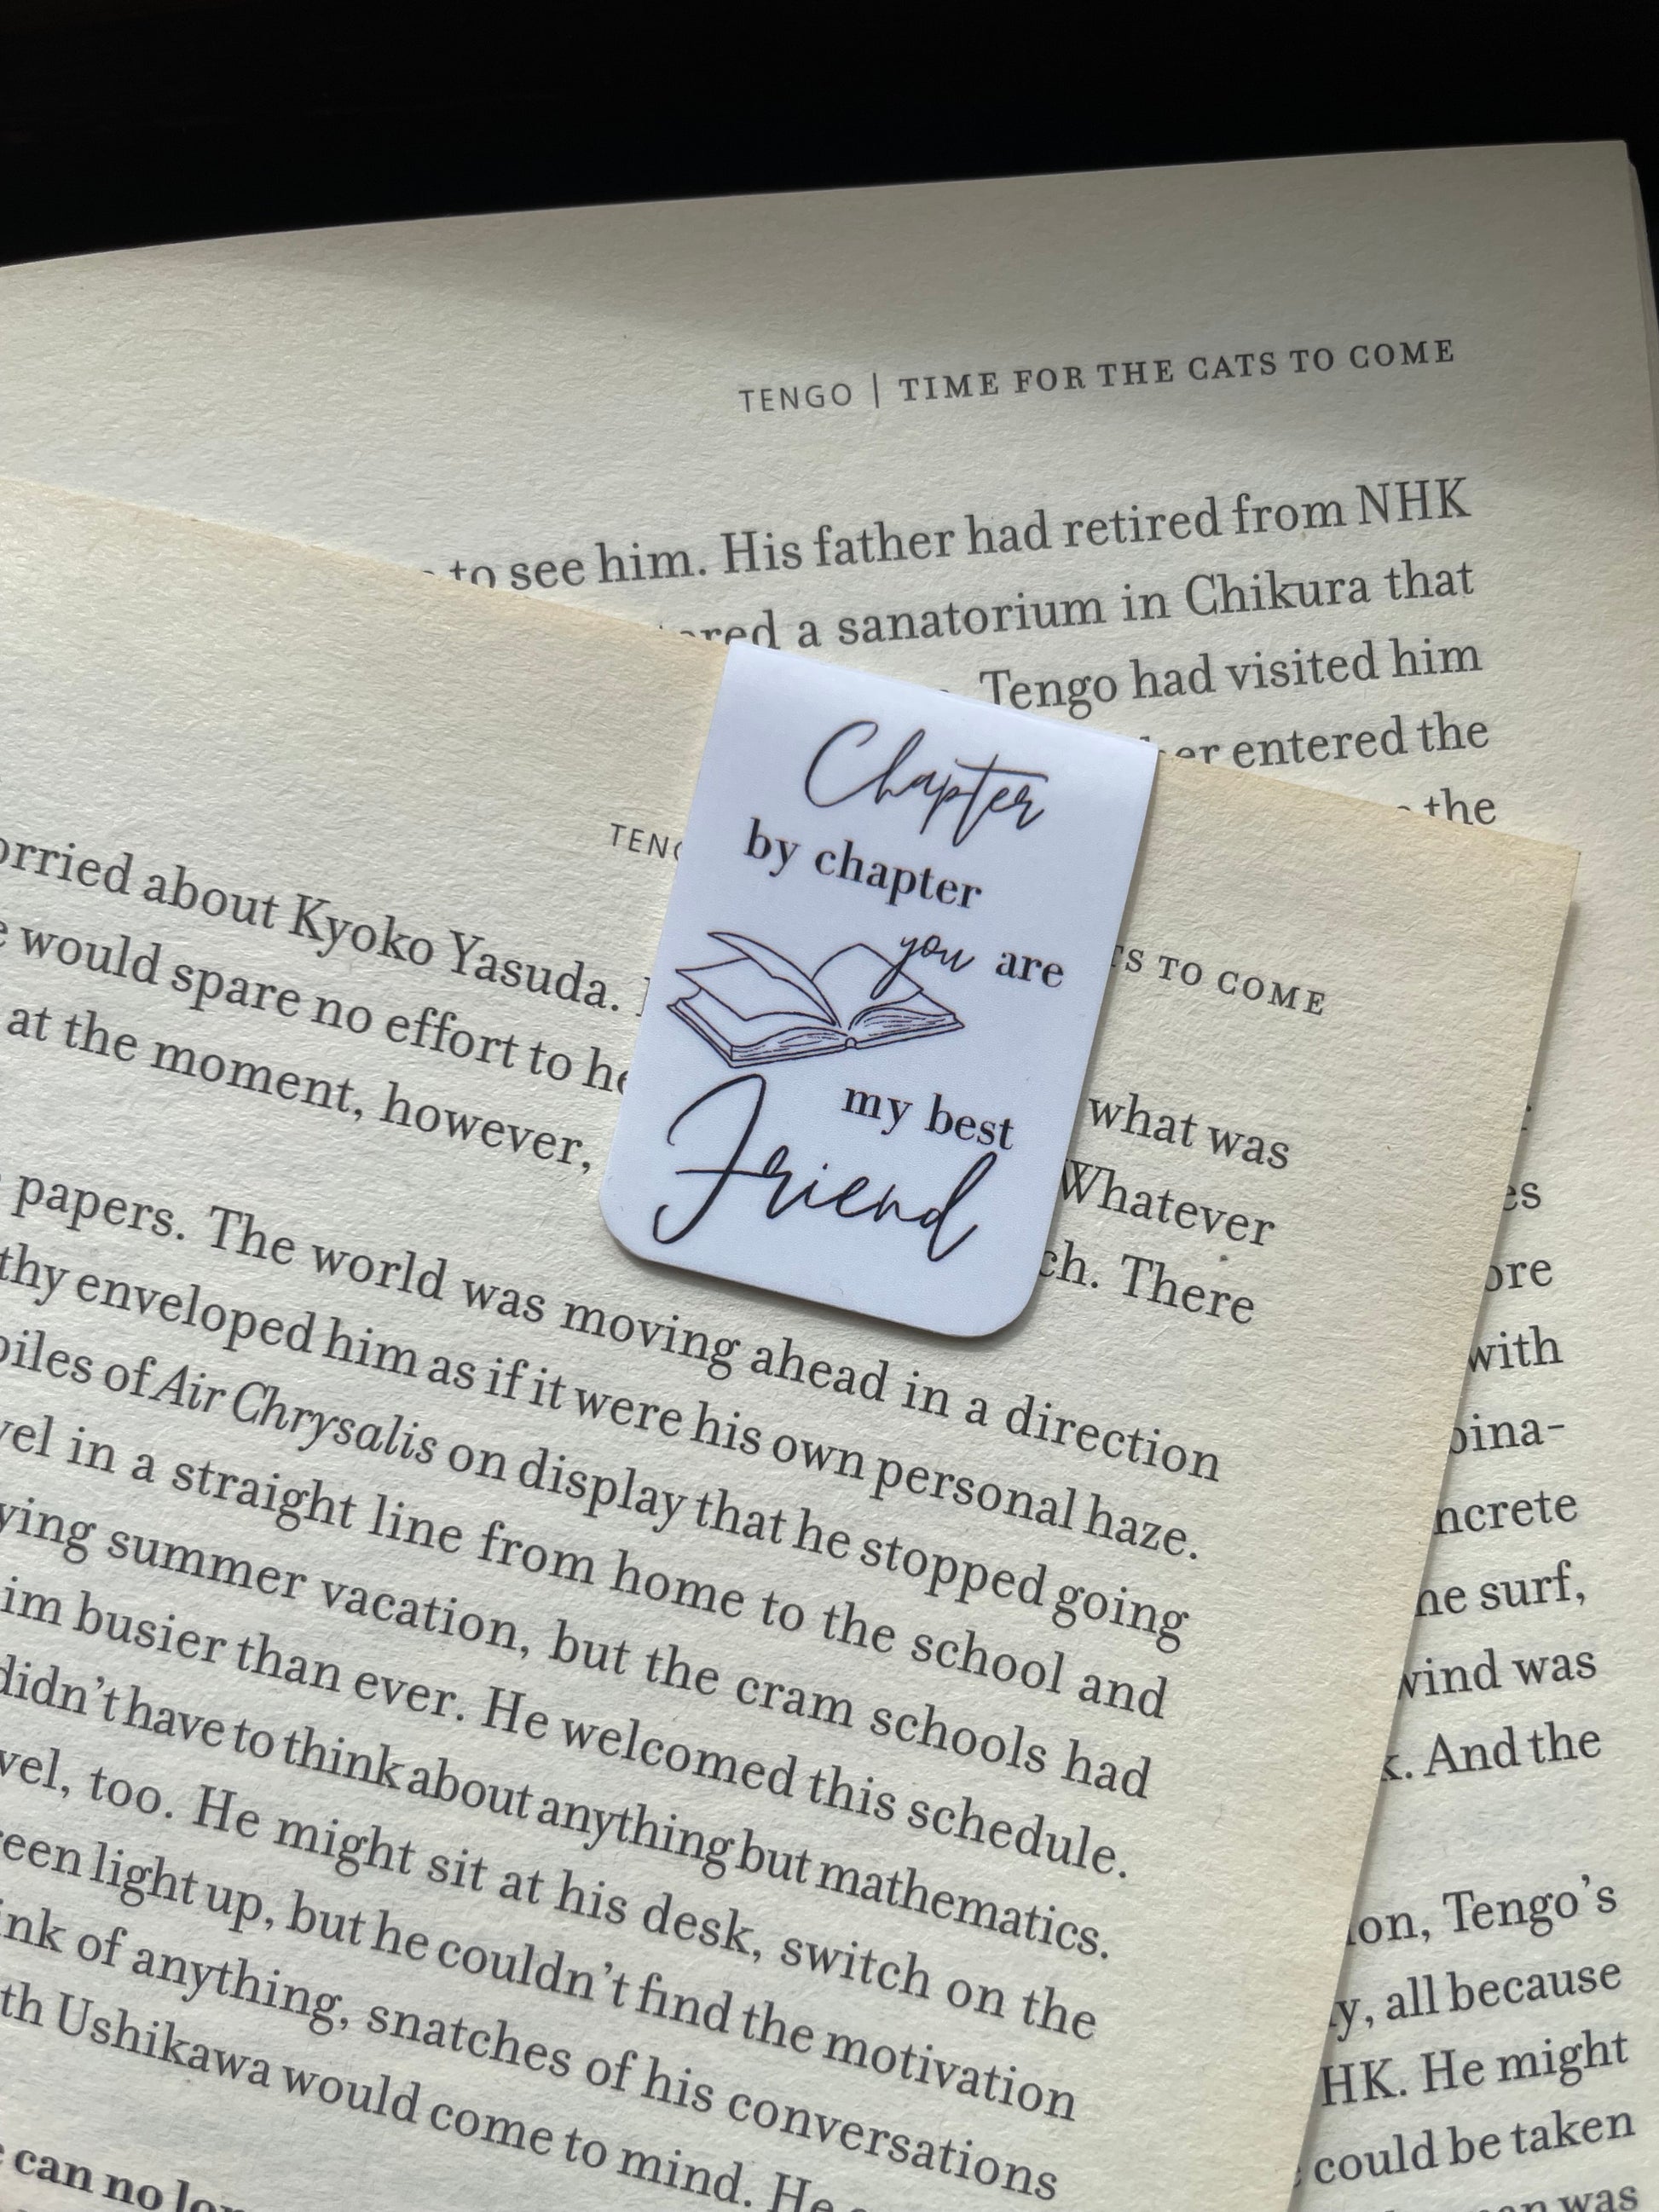 TENGO | TIME FOR THE CATS TO COME
to see him. His father had retired from NHK
a sanatorium in Chikura that
Tengo had visited him
entered the
the
Chapter
by chapter
you are
my best
Friend
TS TO COME
about Kyoko Yasuda.
would spare no effort to
what was
at the moment, however,
Whatever
There
papers. The world was moving ahead in a direction
enveloped him as if it were his own personal haze.
of Air Chrysalis on display that he stopped going
in a straight line from home to the school and
summer vacation, but the cram schools had
busier than ever. He welcomed this schedule.
didn't have to think about anything but mathematics.
too. He might sit at his desk, switch on the
light up, but he couldn't find the motivation
of anything, snatches of his conversations
Ushikawa would come to mind. He
can no
with
surf,
wind was
And the
Tengo's
all because
He might
could be taken
was